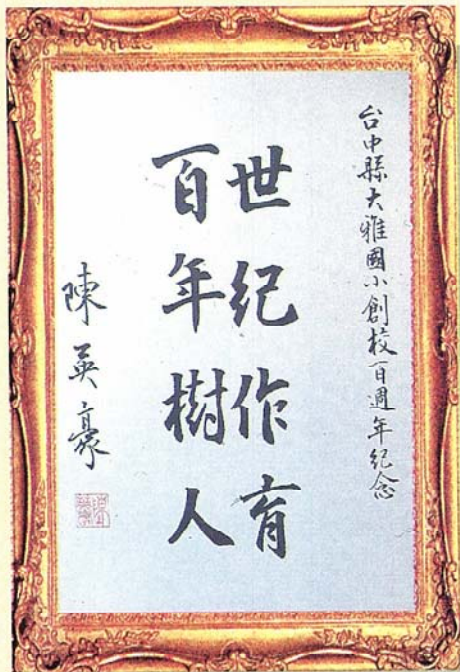 台中縣大雅國小創校百週年紀念
世紀作育
百年樹人
陳英豪